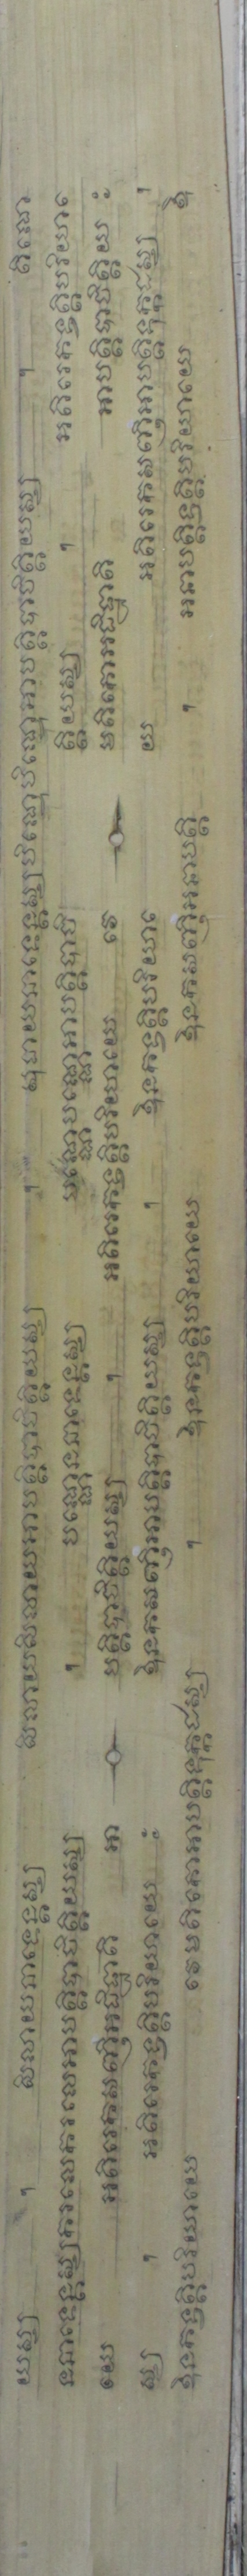 យស្ស ។ សិលាយឆាទេន្តស្ស សិលាយសិលាយអាបត្តិបាចិត្តិយស្ស ។ សុធាយឆាទេន្តស្សបិណ្ឌេបិណ្ឌេអាបត្តិបាចិត្តិយស្ស ។ តិណេ
នឆាទេន្តស្សករលេករលេអាបត្តិបាចិត្តិយស្ស ។ បណ្ណេនឆាទេន្តស្ស បណ្ណេបណ្ណេអាបត្តិបាចិ ត្តិយស្ស ។ អតិរេកទ្វត្តិបរិយាេ
យេ អតិរេកសញ្ញីអធិដ្ឋាតិ អា បត្តិបាចិត្តិយស្ស ។ អតិរេកទ្វត្តិបរិយាយេ វេ មតិកោអធិដ្ឋាតិ អាបត្តិបាចិត្តិយ ៈ
ស្ស ។ អតិរេកទ្វត្តិបរិយាយេ ៈ ឩនកសញ្ញីអាបត្តិបាចិត្តិយស្ស ។ ឩនកទ្វត្តិបរិយាេ យ អតិរេកសញ្ញីអាបត្តិទុក្កដស្ស ។
ឩនកទ្វត្តិបរិយាយេ វេមតិកោអាបត្តិទុក្កដស្ស ។ ឩនកទ្វត្តិបរិយាយេ ឩនកសញ្ញីអនាបត្តិ ។ អនាបត្តិទ្វត្តិបរិយាយេ ឩ